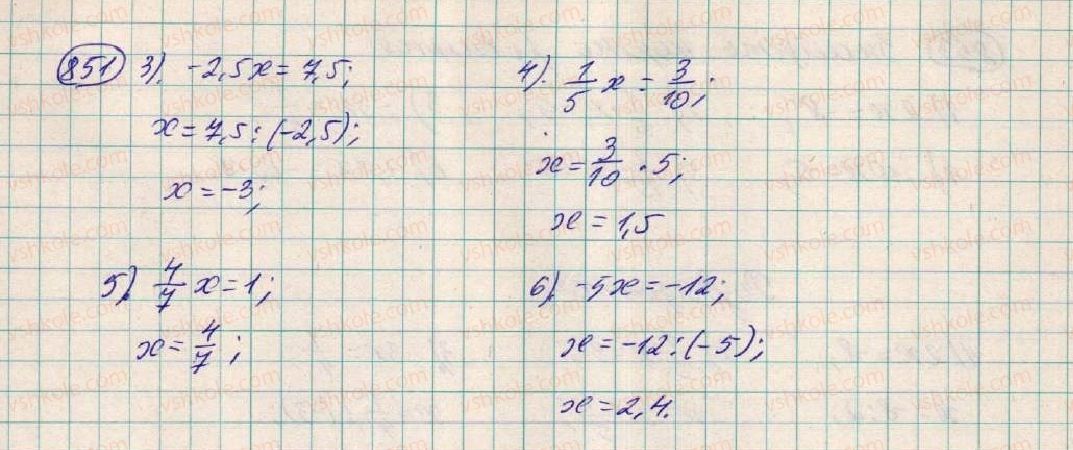 851 3). -2,5x = 7,5;
x = 7,5 : (-2,5);
x = -3;
4). 1/5 x = 3/10;
x = 3/10 · 5;
x = 1,5
5). 4/7 x = 1;
x = 4/7;
6). -5x = -12;
x = -12 : (-5);
x = 2,4.
vshkole.com